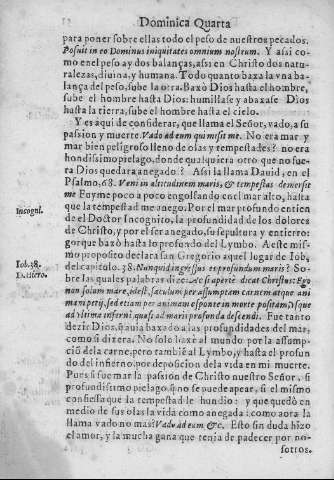 Dominica Quarta
para poner sobre ellas todo el peso de nuestros pecados.
Posuit in eo Dominus iniquitates omnium nostrum. Y assi co-
mo en el peso ay dos balanças, assi en Christo dos natu-
ralezas, diuina, y humana. Todo quanto baxa la vna ba-
lança del peso, sube la otra. Baxò Dios hasta el hombre,
sube el hombre hasta Dios: humillase y abaxase Dios
hasta la tierra, sube el hombre hasta el cielo.
Y es aqui de considerar, que llama el Señor, vado, a su
passion y muerte. Vado ad eum qui misit me. No era mar y
mar bien peligroso lleno de olas y tempestades? no era
hondissimo pielago, donde qualquiera otro que no fue-
ra Dios quedara anegado? Assi la llama Dauid, en el
Psalmo, 68. Veni in altitudinem maris, & tempestas demersit
me Fuyme poco a poco engolfando en el mar alto, hasta
que la tempestad me anego. Por el mar profundo entien-
de el Doctor Incognito, la profundidad de los dolores
de Christo, y por el ser anegado, su sepultura y entierro:
porque baxò hasta lo profundo del Lymbo. A este mis-
mo proposito declara san Gregorio aquel lugar de Iob,
del capitulo. 38. Nunquid ingressus es profundum maris? So-
bre las quales palabras dize: Ac si aperte dicat Christus: Ego
non solum mare, idest, sæculum per assumptam carnem atque ani
mam petij, sed etiam per animam sponte in morte positam, vsque
ad vltima inferni, quasi ad maris profunda descendi. Fue tanto
dezir Dios, q̃ auia baxado a las profundidades del mar,
como si dixera. No solo baxe al mundo por la assump-
ciõ dela carne, pero tambiẽ al Lymbo, y hasta el profun
do del infierno, por deposicion dela vida en mi muerte.
Pues si fue mar la passion de Christo nuestro Señor, si
profundissimo pielago, si no se puede apear, si el mismo
confiessa que la tempestad le hundio: y que quedò en
medio de sus olas la vida como anegada: como aora la
llama vado no mas? Vado ad eum &c. Esto sin duda hizo
el amor, y la mucha gana que tenia de padecer por no-
sotros.
Incognl.
Iob. 38.
D. Hiero.